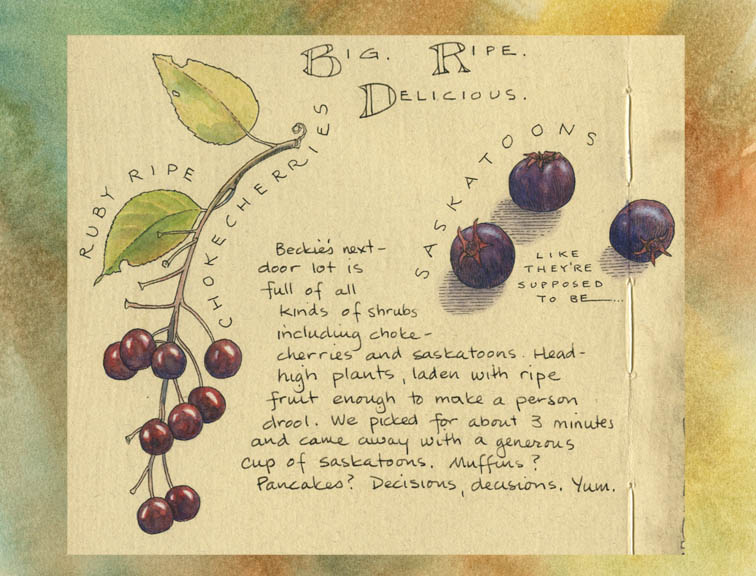 BIG. RIPE.
DELICIOUS.
RUBY RIPE
CHOKECHERRIES
SASKATOONS
LIKE
THEY'RE
SUPPOSED
TO BE
Beckie's next-
door lot is
full of all
kinds of shrubs
including choke-
cherries and saskatoons. Head-
high plants, laden with ripe
fruit enough to make a person
drool. We picked for about 3 minutes
and came away with a generous
cup of saskatoons. Muffins?
Pancakes? Decisions, decisions. Yum.